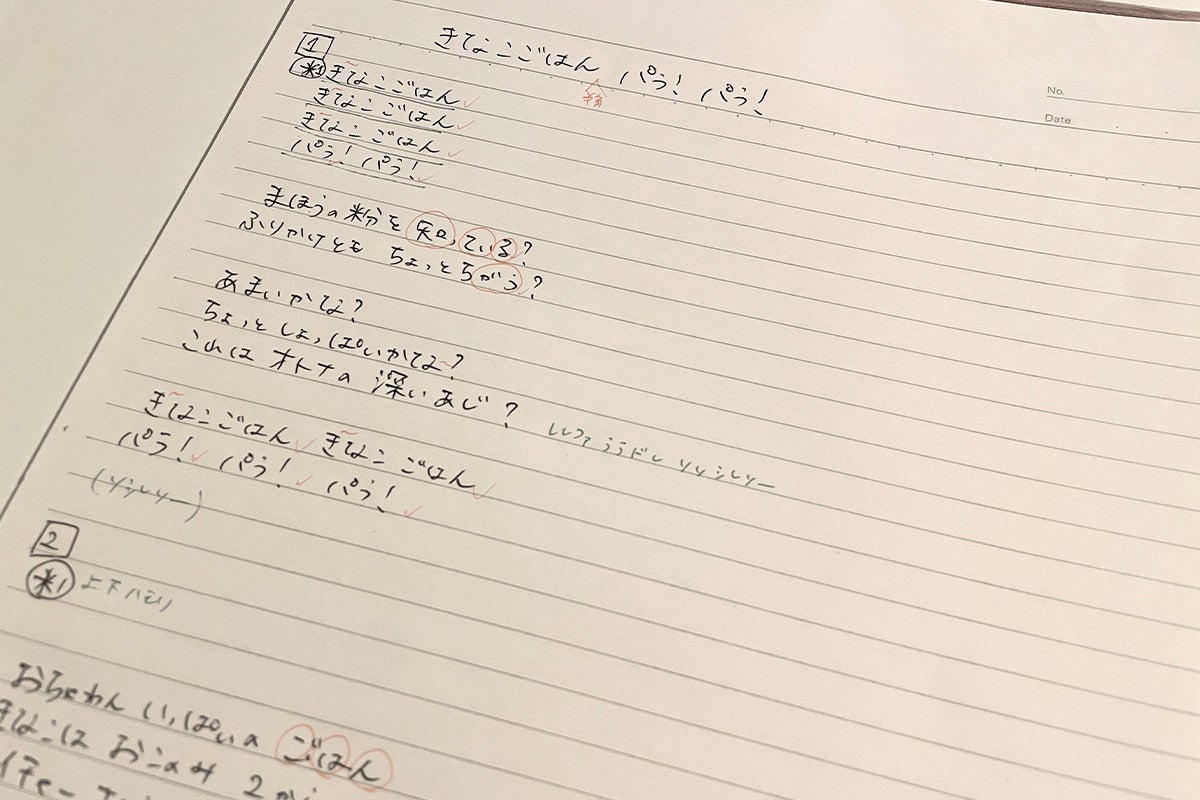 きなこごはん パラ! パラ!
No.
Date
1
*1 きなこごはん
きなこごはん
きなこごはん
パラ! パラ!
まほうの粉を知っている?
ふりかけとも ちょっとちがう?
あまいかな?
ちょっとしょっぱいかな?
これは オトナの 深いあじ?
きなこごはん きなこごはん
パラ! パラ! パラ!
2
*1 上下ハモリ
おちゃわん いっぱいの ごはん
きなこは おこのみ 2から